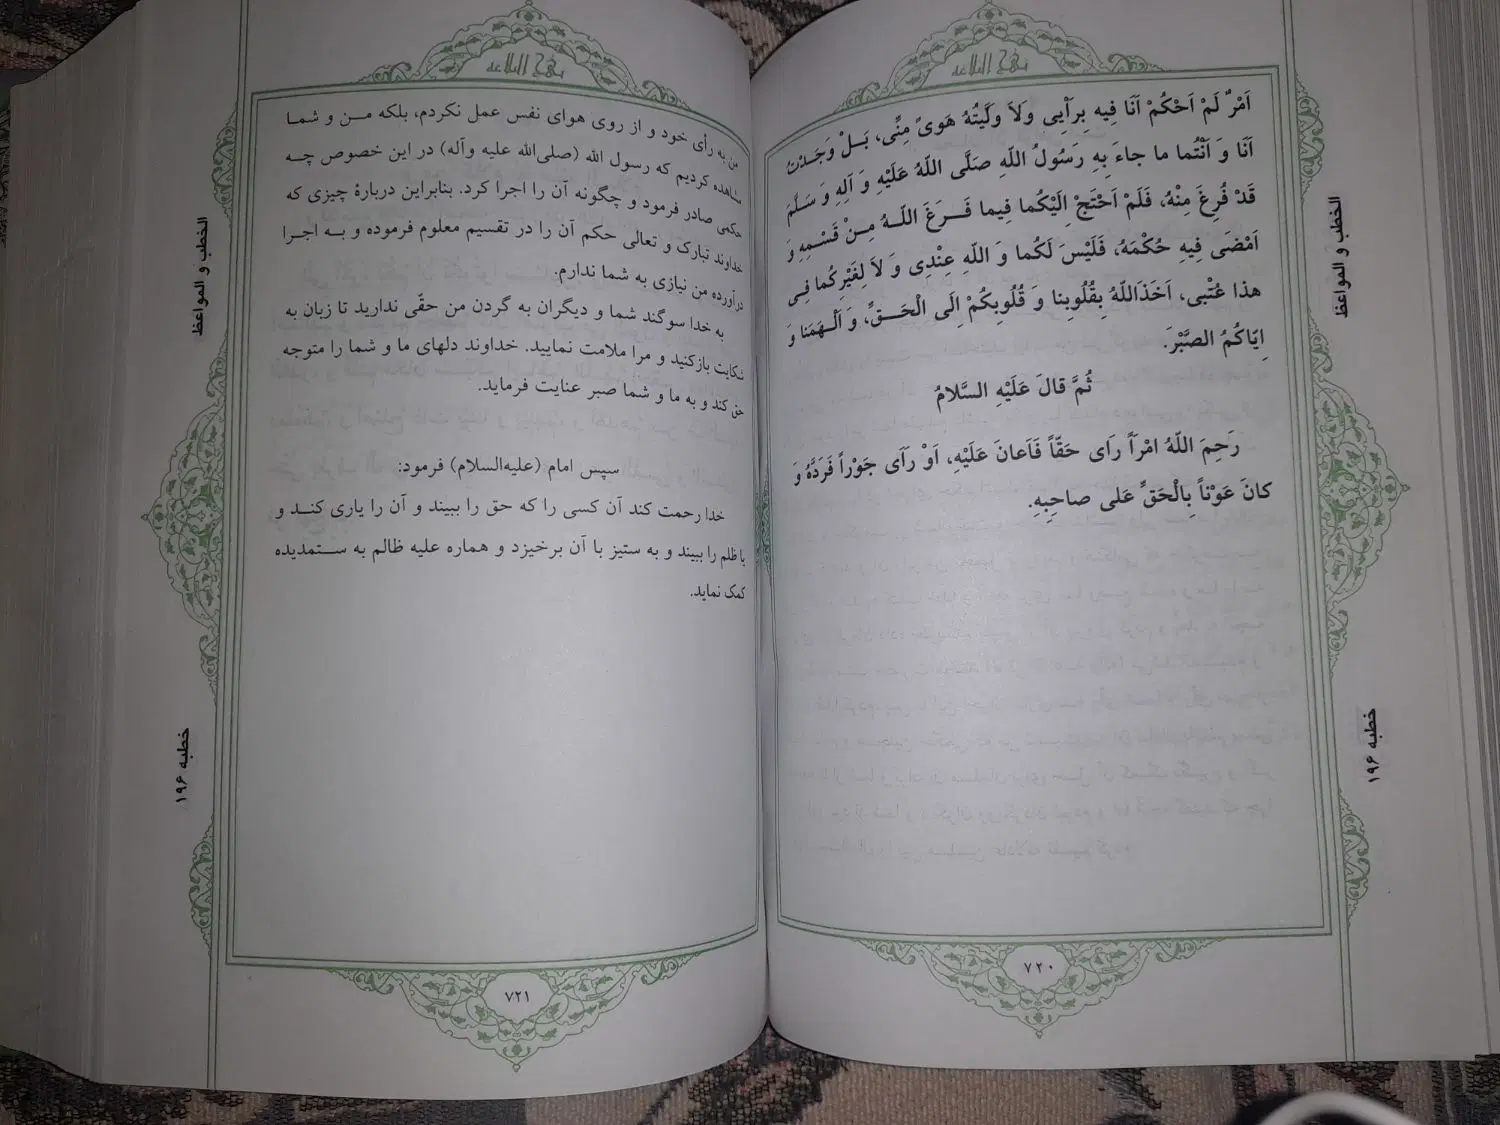 نهج البلاغه
اَمْرٌ لَمْ اَحْكُمْ اَنَا فِيهِ بِرَأْيِى وَلاَ وَلِّيتُهُ هَوىً مِنِّى، بَلْ وَجَدْتُ
اَنَا وَ اَنْتُما ما جاءَ بِهِ رَسُولُ اللّهِ صَلَّى اللّهُ عَلَيْهِ وَ آلِهِ وَ سَلَّمَ
قَدْ فُرِغَ مِنْهُ، فَلَمْ اَحْتَجْ اِلَيْكُما فِيما فَرَغَ اللّهُ مِنْ قَسْمِهِ وَ
اَمْضَى فِيهِ حُكْمَهُ، فَلَيْسَ لَكُما وَ اللّهِ عِنْدِى وَ لاَ لِغَيْرِكُما فِى
هذا عُتْبى، اَخَذَاللّهُ بِقُلُوبِنا وَ قُلُوبِكُمْ اِلَى الْحَقِّ، وَ اَلْهَمَنا وَ
اِيّاكُمُ الصَّبْرَ.
ثُمَّ قالَ عَلَيْهِ السَّلامُ
رَحِمَ اللّهُ امْرَاً رَاى حَقّاً فَاَعانَ عَلَيْهِ، اَوْ رَآى جَوْراً فَرَدَّهُ وَ
كانَ عَوْناً بِالْحَقِّ عَلى صاحِبِهِ.
الخطب و المواعظ
خطبه ۱۹۶
۷۲۰
نهج البلاغه
من به رأی خود و از روی هوای نفس عمل نکردم، بلکه من و شما
مشاهده کردیم که رسول الله (صلی‌الله علیه وآله) در این خصوص چه
حکمی صادر فرمود و چگونه آن را اجرا کرد. بنابراین دربارهٔ چیزی که
خداوند تبارک و تعالی حکم آن را در تقسیم معلوم فرموده و به اجرا
درآورده من نیازی به شما ندارم.
به خدا سوگند شما و دیگران به گردن من حقّی ندارید تا زبان به
شکایت بازکنید و مرا ملامت نمایید. خداوند دلهای ما و شما را متوجه
حق کند و به ما و شما صبر عنایت فرماید.
سپس امام (علیه‌السلام) فرمود:
خدا رحمت کند آن کسی را که حق را ببیند و آن را یاری کند و
یا ظلم را ببیند و به ستیز با آن برخیزد و هماره علیه ظالم به ستمدیده
کمک نماید.
الخطب و المواعظ
خطبه ۱۹۶
۷۲۱